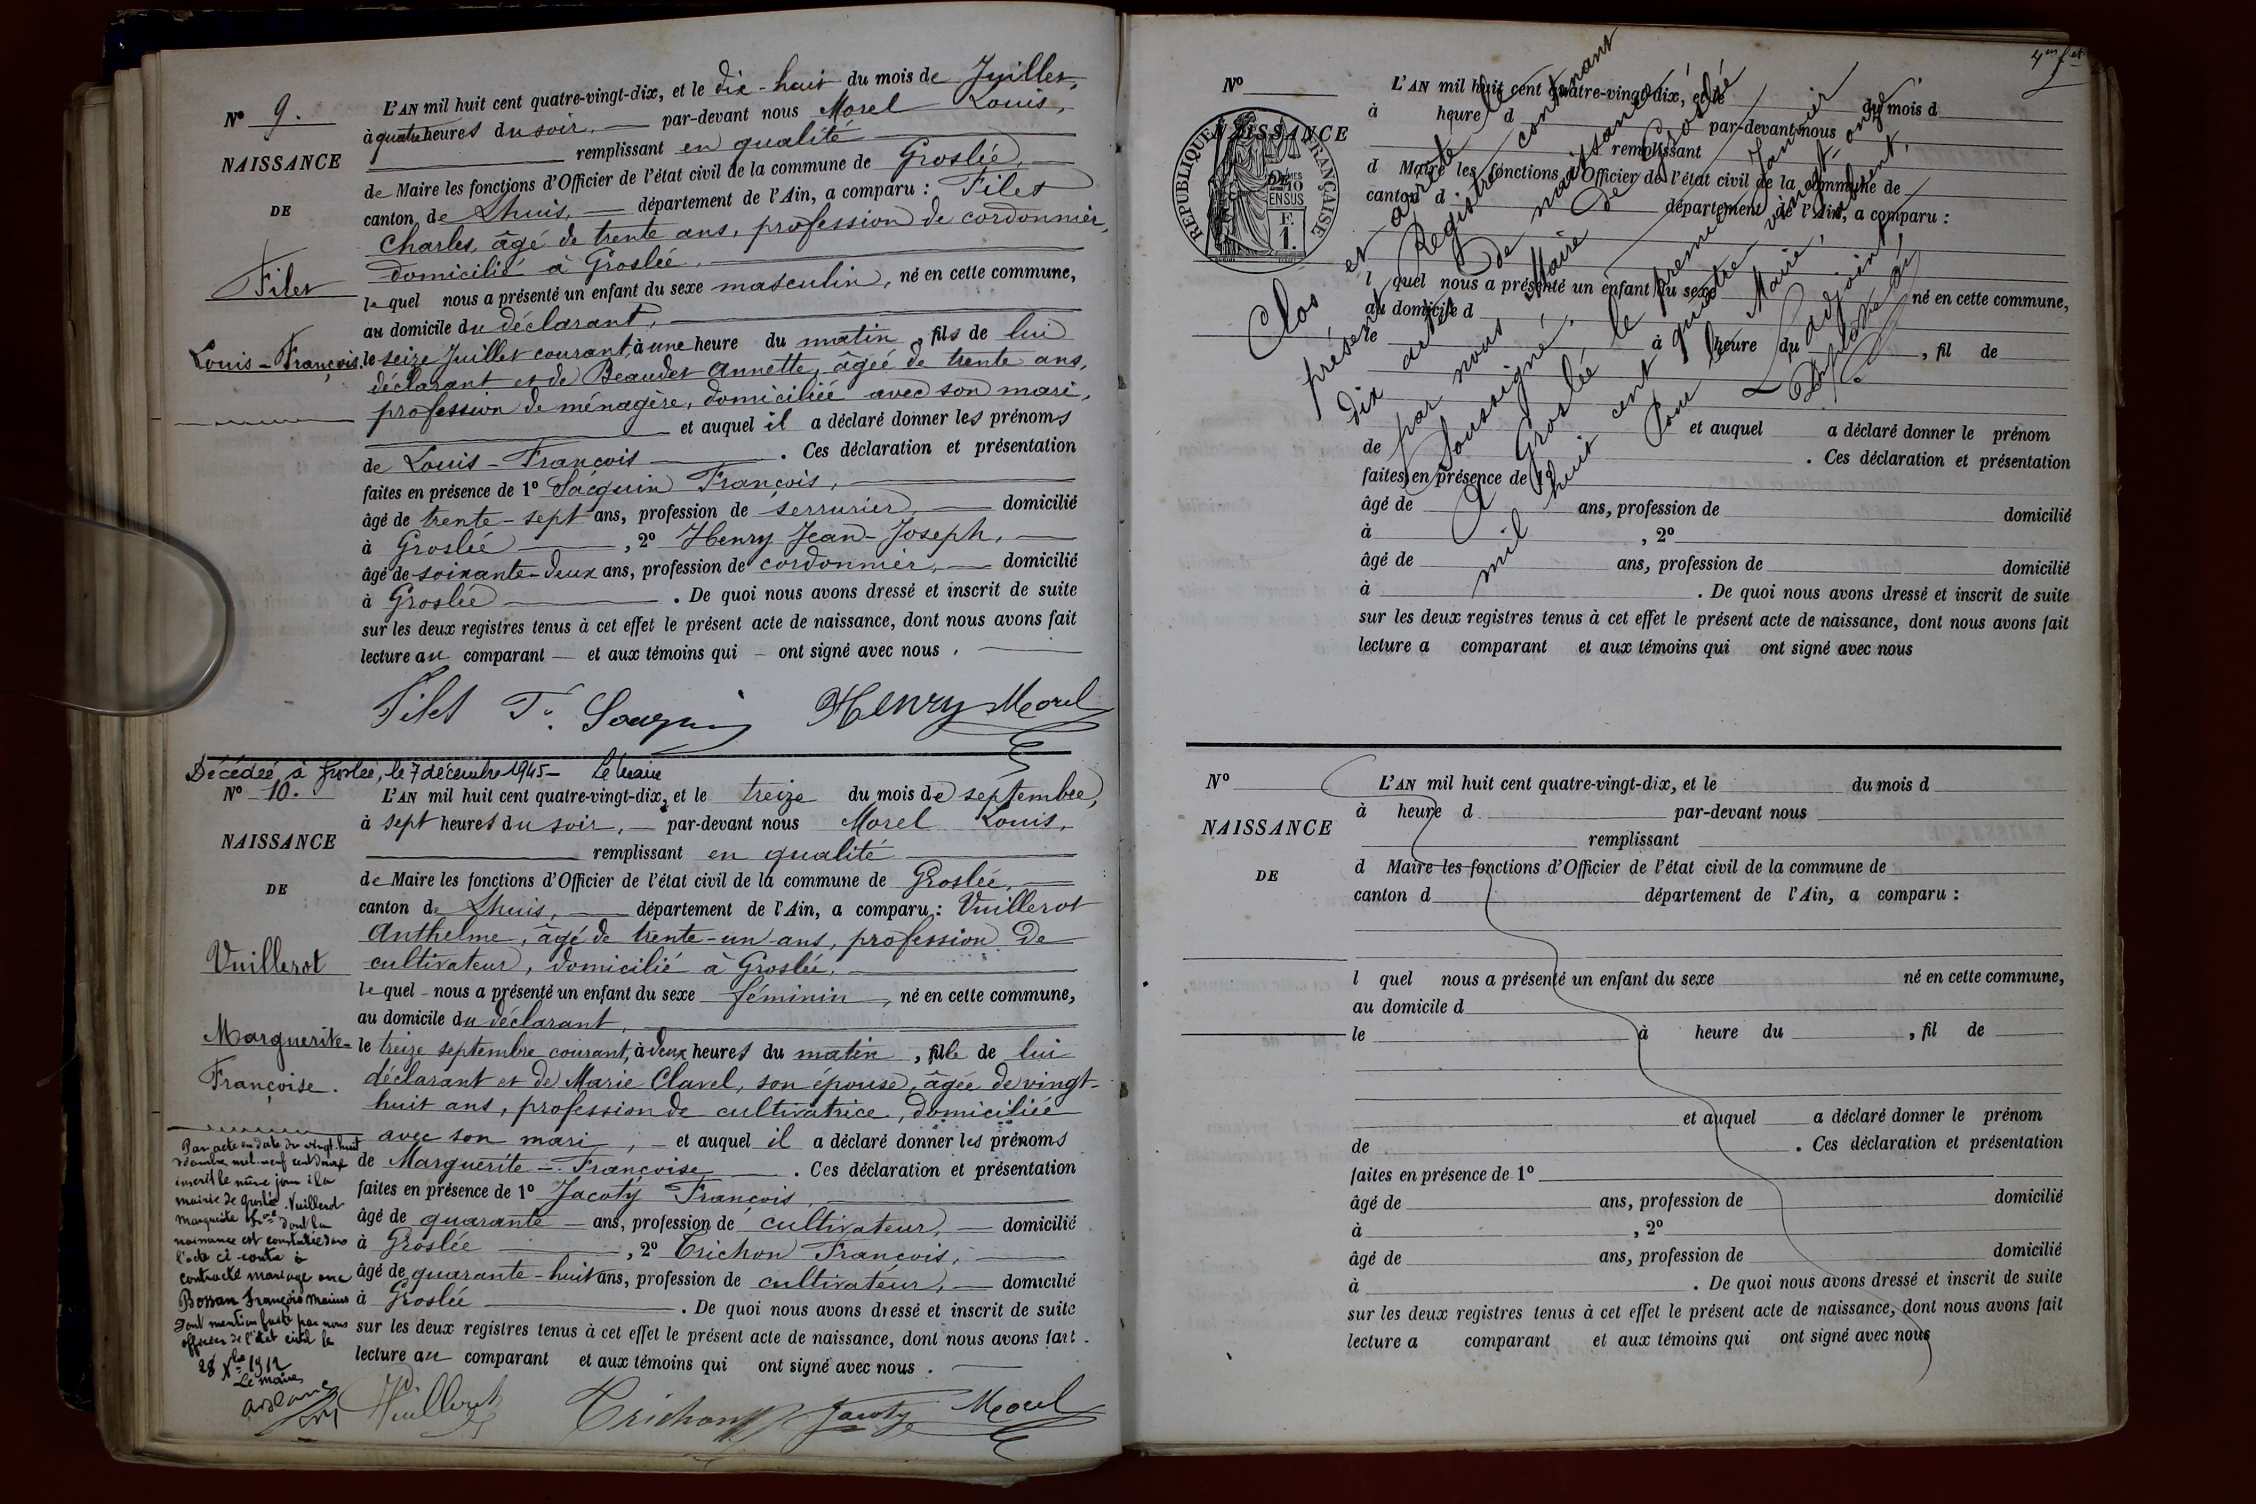 N° 9.
NAISSANCE
DE
Filet
Louis-François.
L'AN mil huit cent quatre-vingt-dix, et le dix-huit du mois de Juillet,
à quatre heures du soir, par-devant nous Morel Louis,
remplissant en qualité
de Maire les fonctions d'Officier de l'état civil de la commune de Groslée,
canton de Lhuis, département de l'Ain, a comparu : Filet
Charles, âgé de trente ans, profession de cordonnier,
domicilié à Groslée,
le quel nous a présenté un enfant du sexe masculin, né en cette commune,
au domicile du déclarant,
le seize Juillet courant, à une heure du matin, fils de lui
déclarant et de Beaudet Annette, âgée de trente ans,
profession de ménagère, domiciliée avec son mari,
et auquel il a déclaré donner les prénoms
de Louis-François. Ces déclaration et présentation
faites en présence de 1° Jacquin François,
âgé de trente-sept ans, profession de serrurier, domicilié
à Groslée, 2° Henry Jean-Joseph,
âgé de soixante-deux ans, profession de cordonnier, domicilié
à Groslée. De quoi nous avons dressé et inscrit de suite
sur les deux registres tenus à cet effet le présent acte de naissance, dont nous avons fait
lecture au comparant et aux témoins qui ont signé avec nous.
Filet Henry Morel
Décédée à Groslée, le 7 décembre 1945 - Le Maire
N° 10.
NAISSANCE
DE
Vuillerot
Marguerite-
Françoise.
L'AN mil huit cent quatre-vingt-dix, et le treize du mois de septembre,
à sept heures du soir, par-devant nous Morel Louis,
remplissant en qualité
de Maire les fonctions d'Officier de l'état civil de la commune de Groslée,
canton de Lhuis, département de l'Ain, a comparu : Vuillerot
Anthelme, âgé de trente-un ans, profession de
cultivateur, domicilié à Groslée,
le quel nous a présenté un enfant du sexe féminin, né en cette commune,
au domicile du déclarant,
le treize septembre courant, à deux heures du matin, fille de lui
déclarant et de Marie Clavel, son épouse, âgée de vingt-
huit ans, profession de cultivatrice, domiciliée
avec son mari, et auquel il a déclaré donner les prénoms
de Marguerite-Françoise. Ces déclaration et présentation
faites en présence de 1° Jacoty François,
âgé de quarante ans, profession de cultivateur, domicilié
à Groslée, 2° Trichon François,
âgé de quarante-huit ans, profession de cultivateur, domicilié
à Groslée. De quoi nous avons dressé et inscrit de suite
sur les deux registres tenus à cet effet le présent acte de naissance, dont nous avons fait
lecture au comparant et aux témoins qui ont signé avec nous.
Vuillerot Trichon Jacoty Morel
Par acte en date du vingt-huit
décembre mil-neuf cent douze
inscrit le même jour à la
mairie de Groslée. Vuillerot
Marguerite Fçoise dont la
naissance est constatée dans
l'acte ci-contre à
contracté mariage avec
Bossan François Marius
Dont mention faite par nous
officier de l'état civil le
28 Xbre 1912
Le maire,
N°
NAISSANCE
DE
RÉPUBLIQUE FRANÇAISE
L'AN mil huit cent quatre-vingt-dix, et le du mois d
à heure d par-devant nous
remplissant
d Maire les fonctions d'Officier de l'état civil de la commune de
canton d département de l'Ain, a comparu :
l quel nous a présenté un enfant du sexe né en cette commune,
au domicile d
le à heure du , fil de
et auquel a déclaré donner le prénom
de . Ces déclaration et présentation
faites en présence de 1°
âgé de ans, profession de domicilié
à , 2°
âgé de ans, profession de domicilié
à . De quoi nous avons dressé et inscrit de suite
sur les deux registres tenus à cet effet le présent acte de naissance, dont nous avons fait
lecture a comparant et aux témoins qui ont signé avec nous
Clos et arrêté le
présent Registre contenant
dix actes de naissance
par nous Maire de Groslée
soussigné.
A Groslée, le premier Janvier
mil huit cent quatre vingt-onze
Pour le Maire, absent,
L'adjoint,
N°
NAISSANCE
DE
L'AN mil huit cent quatre-vingt-dix, et le du mois d
à heure d par-devant nous
remplissant
d Maire les fonctions d'Officier de l'état civil de la commune de
canton d département de l'Ain, a comparu :
l quel nous a présenté un enfant du sexe né en cette commune,
au domicile d
le à heure du , fil de
et auquel a déclaré donner le prénom
de . Ces déclaration et présentation
faites en présence de 1°
âgé de ans, profession de domicilié
à , 2°
âgé de ans, profession de domicilié
à . De quoi nous avons dressé et inscrit de suite
sur les deux registres tenus à cet effet le présent acte de naissance, dont nous avons fait
lecture a comparant et aux témoins qui ont signé avec nous